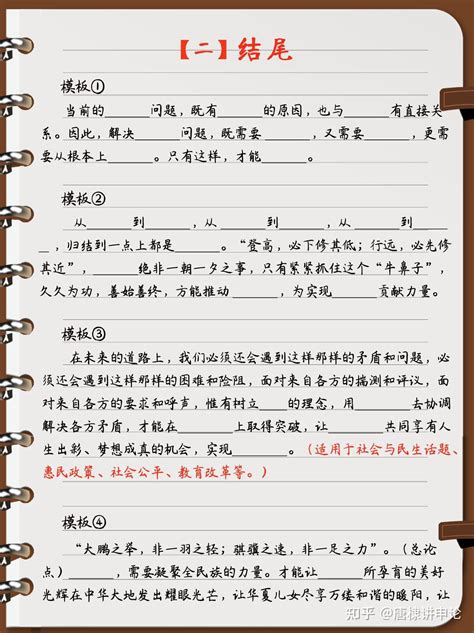 【二】结尾
模板①
当前的______问题，既有______的原因，也与______有直接关
系。因此，解决______问题，既需要______，又需要______，更需
要从根本上______。只有这样，才能______。
模板②
从______到______，从______到______，从______到____
__，归结到一点上都是______。“登高，必下修其低；行远，必先修
其近”，______绝非一朝一夕之事，只有紧紧抓住这个“牛鼻子”，
久久为功，善始善终，方能推动______，为实现______贡献力量。
模板③
在未来的道路上，我们必须还会遇到这样那样的矛盾和问题，必
须还会遇到这样那样的困难和险阻，面对来自各方的揣测和评议，面
对来自各方的要求和呼声，惟有树立______的理念，用______去协调
解决各方矛盾，才能在______上取得突破，让______共同享有人
生出彩、梦想成真的机会，实现______。（适用于社会与民生话题、
惠民政策、社会公平、教育改革等。）
模板④
“大鹏之举，非一羽之轻；骐骥之速，非一足之力”。（总论
点）______，需要凝聚全民族的力量。才能让______所孕育的美好
光辉在中华大地发出耀眼光芒，让华夏儿女尽享万缕和谐的暖阳，让
知乎 @唐棣讲申论